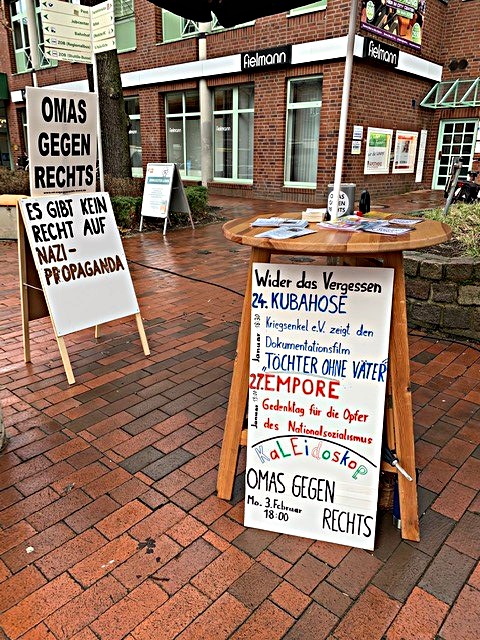 Jobcenter
Bahnhof
ZOB (Regional)
OMAS
GEGEN
RECHTS
ES GIBT KEIN
RECHT AUF
NAZI-
PROPAGANDA
fielmann
fielmann
OMAS
GEGEN
Wider das Vergessen
24. KUBAHOSE
Januar 18:30
Kriegsenkel e.V. zeigt den
Dokumentationsfilm
„TÖCHTER OHNE VÄTER"
27. EMPORE
Januar
Gedenktag für die Opfer
des Nationalsozialismus
KaLEidoskop
OMAS GEGEN
RECHTS
Mo. 3. Februar
18:00